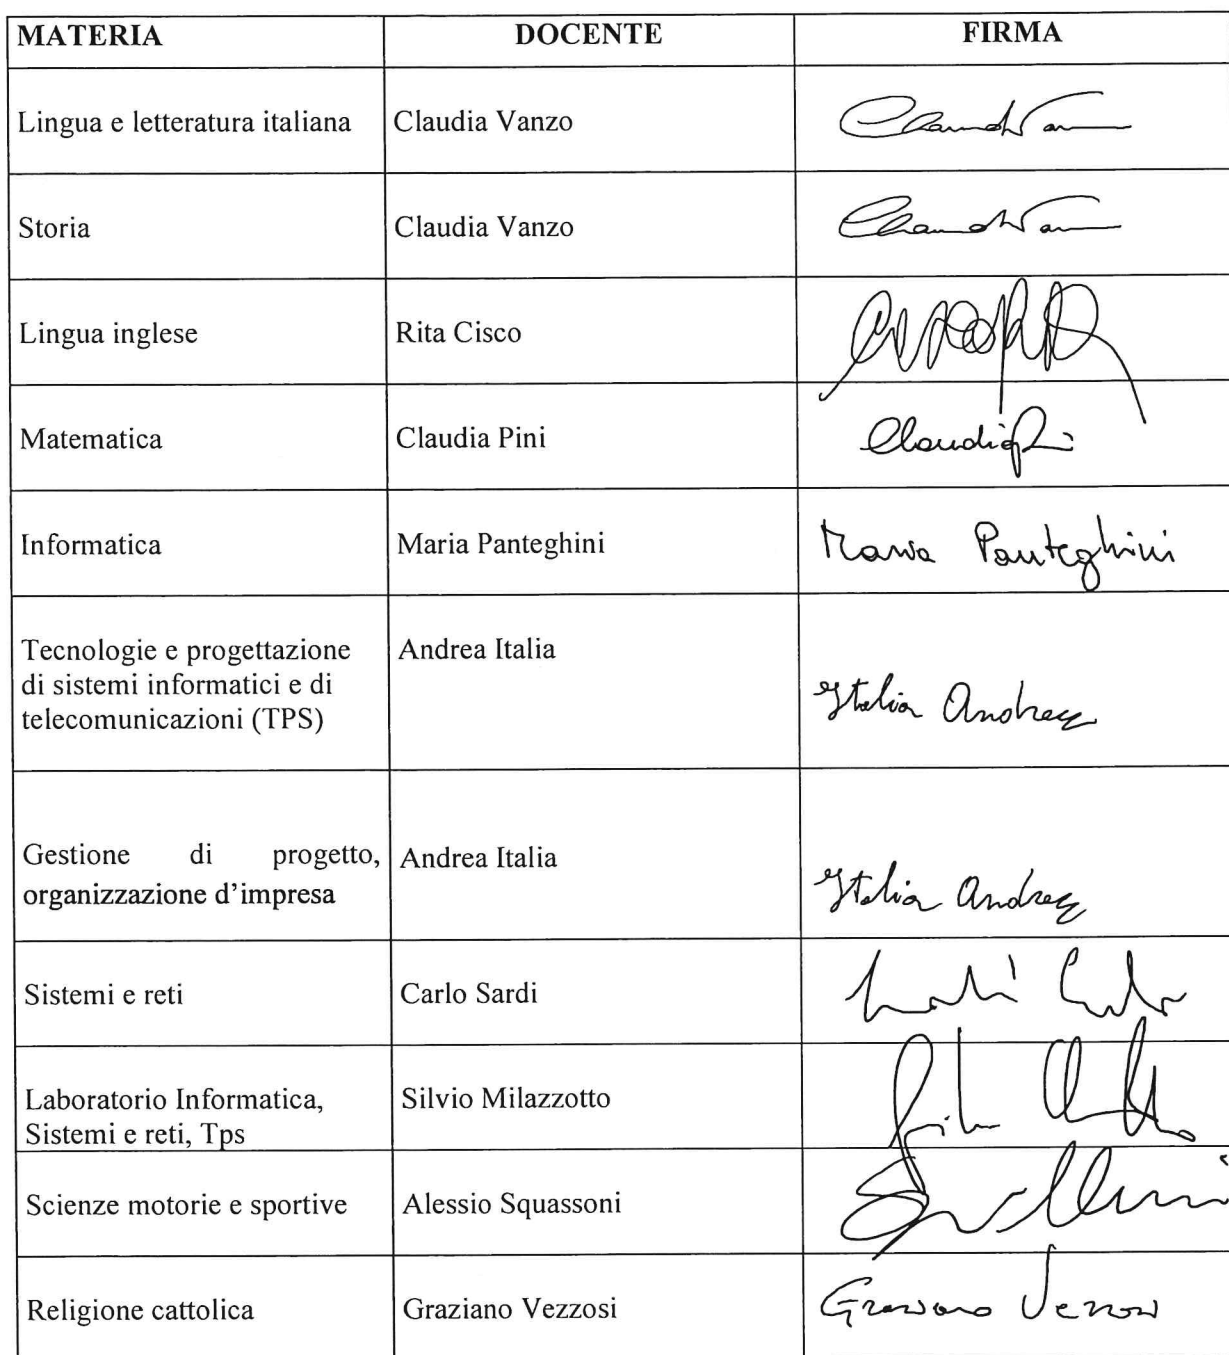 MATERIA DOCENTE FIRMA
Lingua e letteratura italiana Claudia Vanzo
Storia Claudia Vanzo
Lingua inglese Rita Cisco
Matematica Claudia Pini Claudia Pini
Informatica Maria Panteghini Maria Panteghini
Tecnologie e progettazione Andrea Italia
di sistemi informatici e di
telecomunicazioni (TPS) Italia Andrea
Gestione di progetto, Andrea Italia
organizzazione d'impresa Italia Andrea
Sistemi e reti Carlo Sardi Sardi Carlo
Laboratorio Informatica, Silvio Milazzotto
Sistemi e reti, Tps
Scienze motorie e sportive Alessio Squassoni
Religione cattolica Graziano Vezzosi Graziano Vezzosi